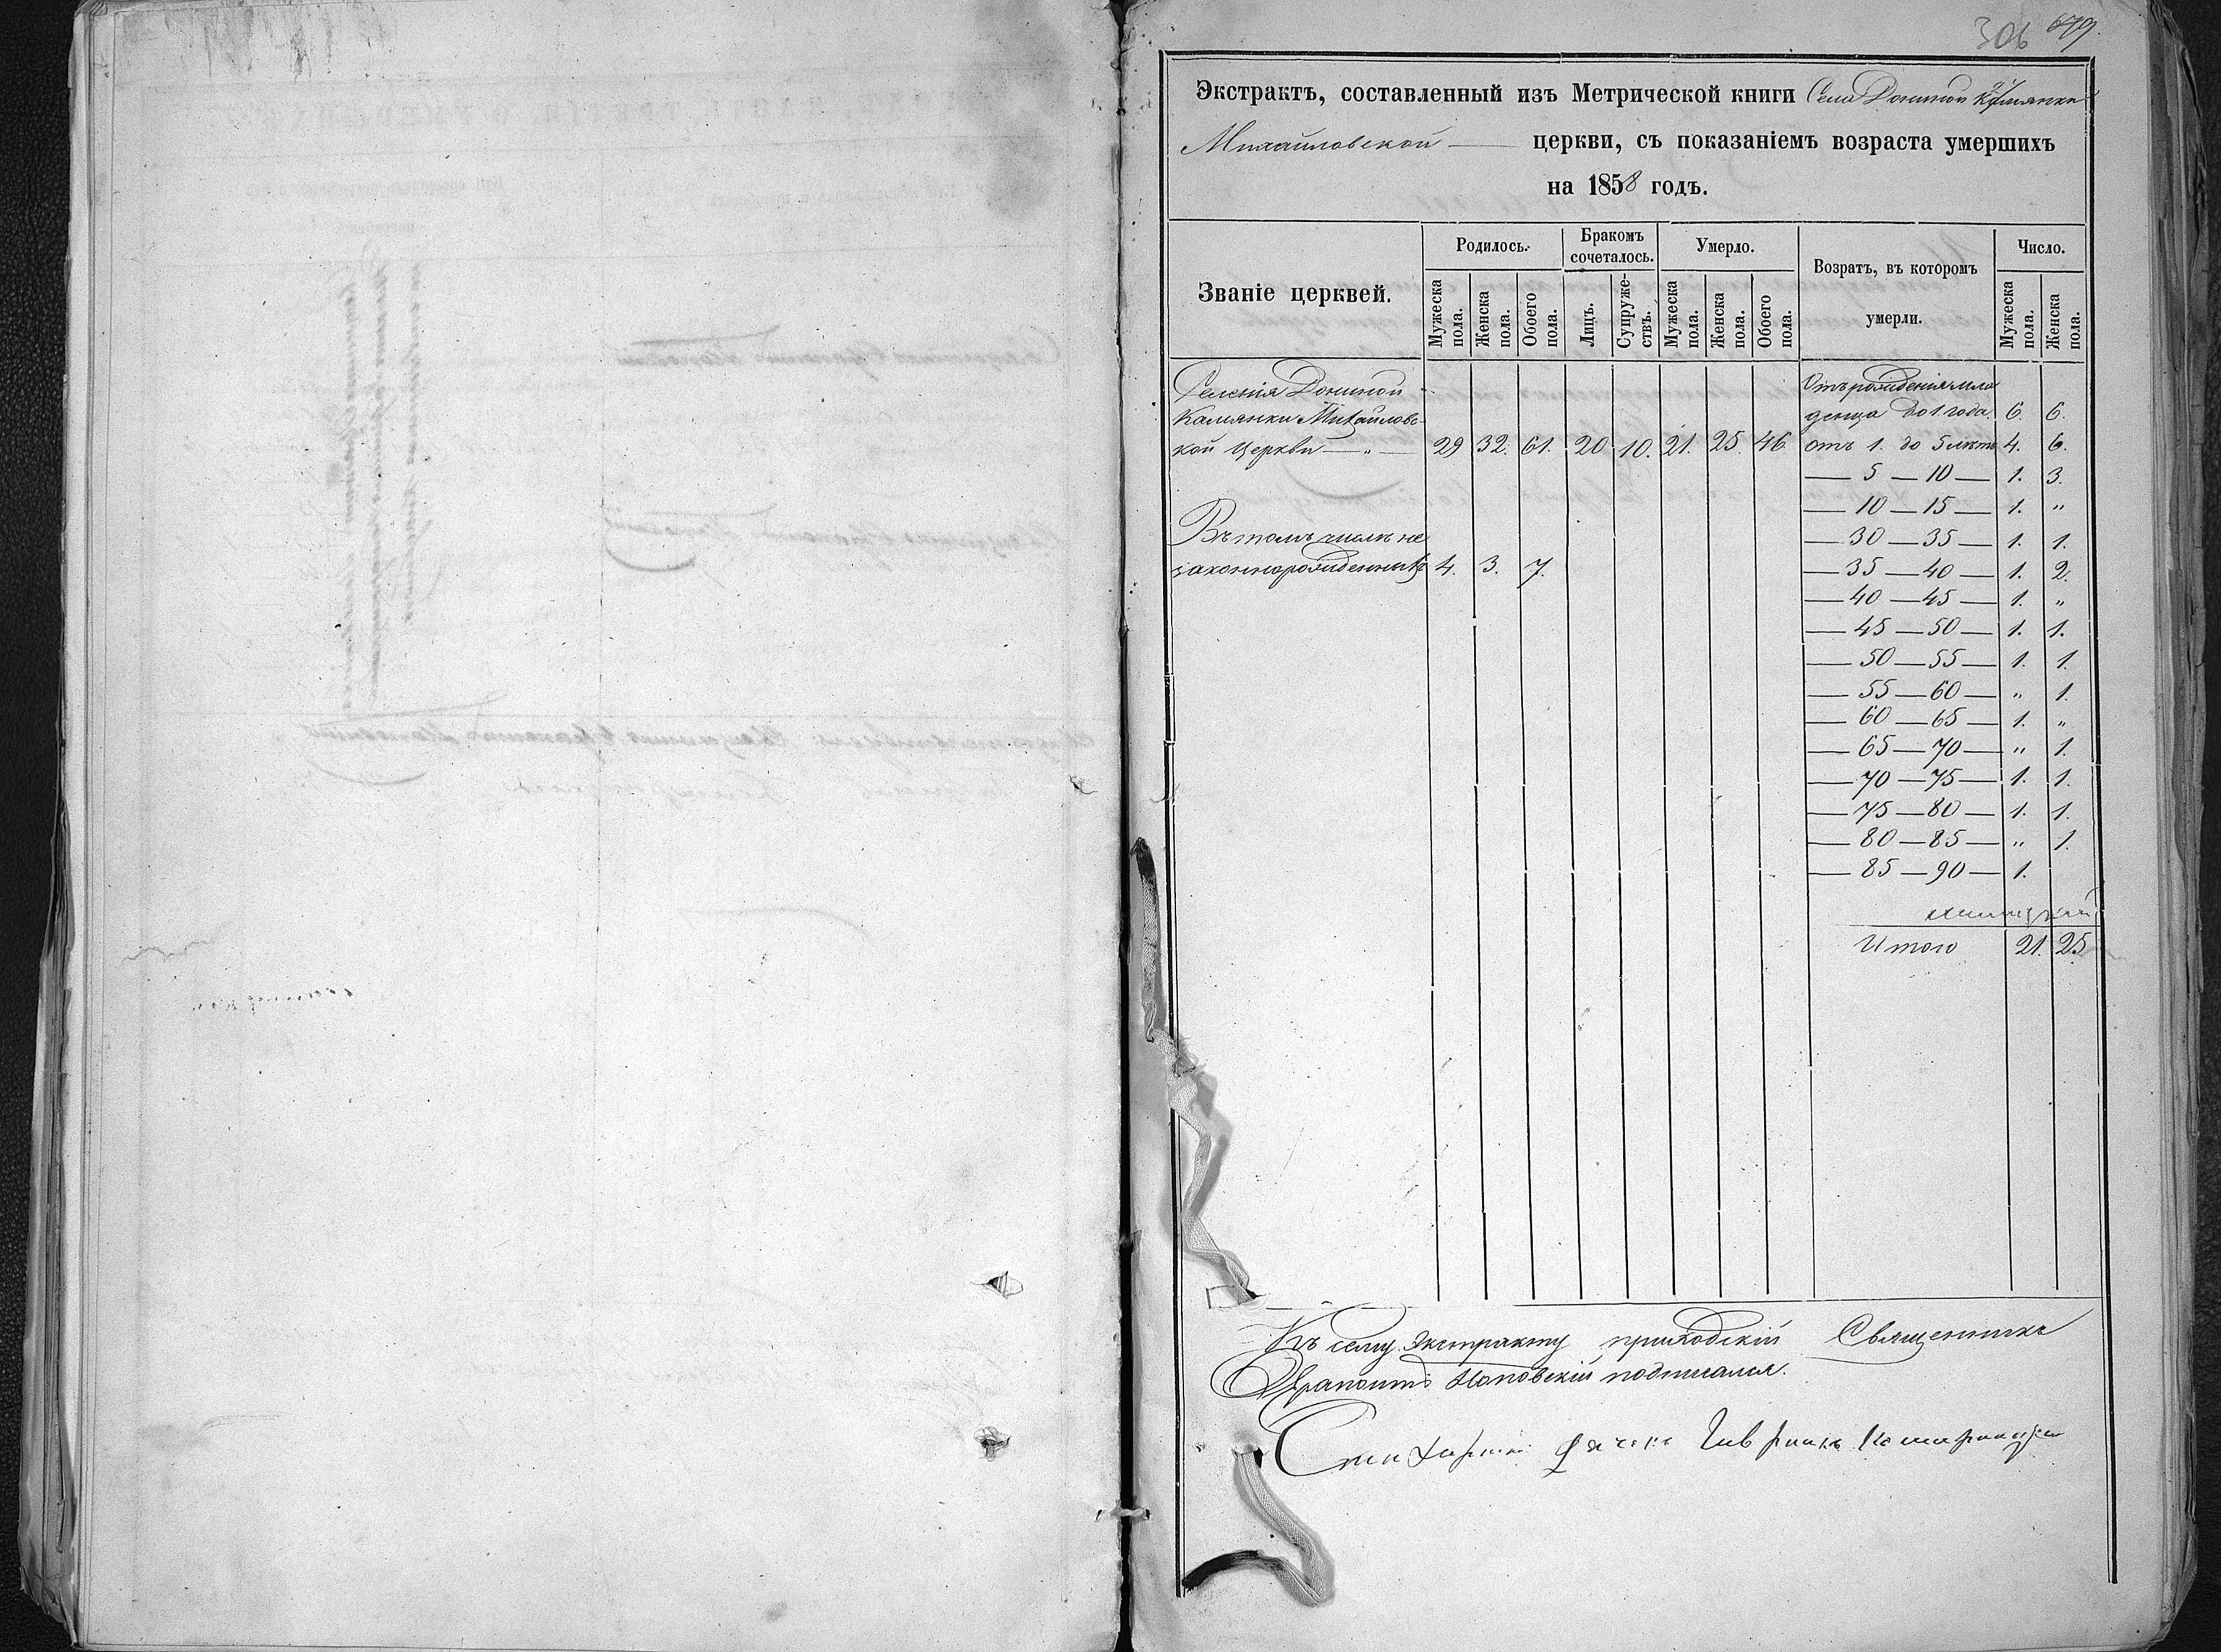 306 679.
Экстрактъ, составленный изъ Метрической книги Села Дониной Камянки
Михайловской — церкви, съ показаніемъ возраста умершихъ
на 1858 годъ.
Званіе церквей.
Родилось.
Бракомъ сочеталось.
Умерло.
Возратъ, въ которомъ умерли.
Число.
Мужеска пола.
Женска пола.
Обоего пола.
Лицъ.
Супружествъ.
Мужеска пола.
Женска пола.
Обоего пола.
Мужеска пола.
Женска пола.
Селенія Дониной
Камянки Михайловс-
кой Церкви — „ — 29 32. 61. 20 10. 21. 25. 46
Въ томъ числѣ не
законнорожденныхъ 4. 3. 7.
Отъ рожденія мла
денца до 1 года. 6. 6.
отъ 1. до 5 лѣтъ 4. 6.
— 5 — 10 — 1. 3.
— 10 — 15 — 1. „
— 30 — 35 — 1. 1.
— 35 — 40 — 1. 2.
— 40 — 45 — 1. „
— 45 — 50 — 1. 1.
— 50 — 55 — 1. 1.
— 55 — 60 — „ 1.
— 60 — 65 — 1. „
— 65 — 70 — „ 1.
— 70 — 75 — 1. 1.
— 75 — 80 — 1. 1.
— 80 — 85 — „ 1.
— 85 — 90 — 1.
Итого 21. 25
Къ сему экстракту приходскій Священникъ
подписался.
Стихарный дячекъ Гавріилъ